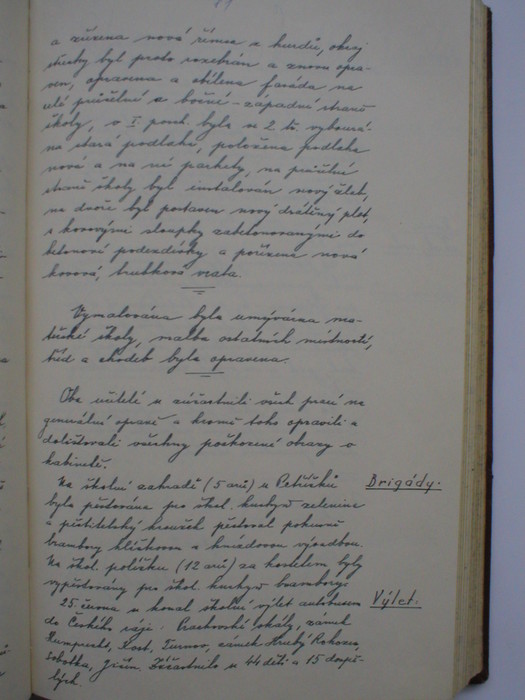 a zúžena nová římsa z hurdů, okraj
střechy byl proto rozebrán a znovu opra-
ven, opravena a obílena fasáda na
celé průčelní a boční - západní straně
školy, v I. posch. byla ve 2. tř. vybourá-
na stará podlaha, položena podlaha
nová a na ní parkety, na průčelní
straně školy byl instalován nový žlab,
na dvoře byl postaven nový drátěný plot,
s kovovými sloupky zabetonovanými do
betonové podezdívky a pořízena nová
kovová, trubková vrata.
Vymalována byla umývárna ma-
teřské školy, malba ostatních místností,
tříd a chodeb byla opravena.
Oba učitelé se zúčastnili všech prací na
generální opravě a kromě toho opravili a
dolištovali všechny poškozené obrazy v
kabinetě.
Na školní zahradě (5 arů) u Petříčků Brigády.
byla pěstována pro škol. kuchyni zelenina
a pěstitelský kroužek pěstoval pokusně
brambory klíčkovou a hnízdovou výsadbou.
Na škol. políčku (12 arů) za kostelem byly
vypěstovány pro škol. kuchyni brambory.
25. června se konal školní výlet autobusem Výlet.
do Českého ráje. Prachovské skály, zámek
Humprecht, Kost, Turnov, zámek Hrubý Rohozec,
Sobotka, Jičín. Zúčastnilo se 44 dětí a 15 dospě-
lých.